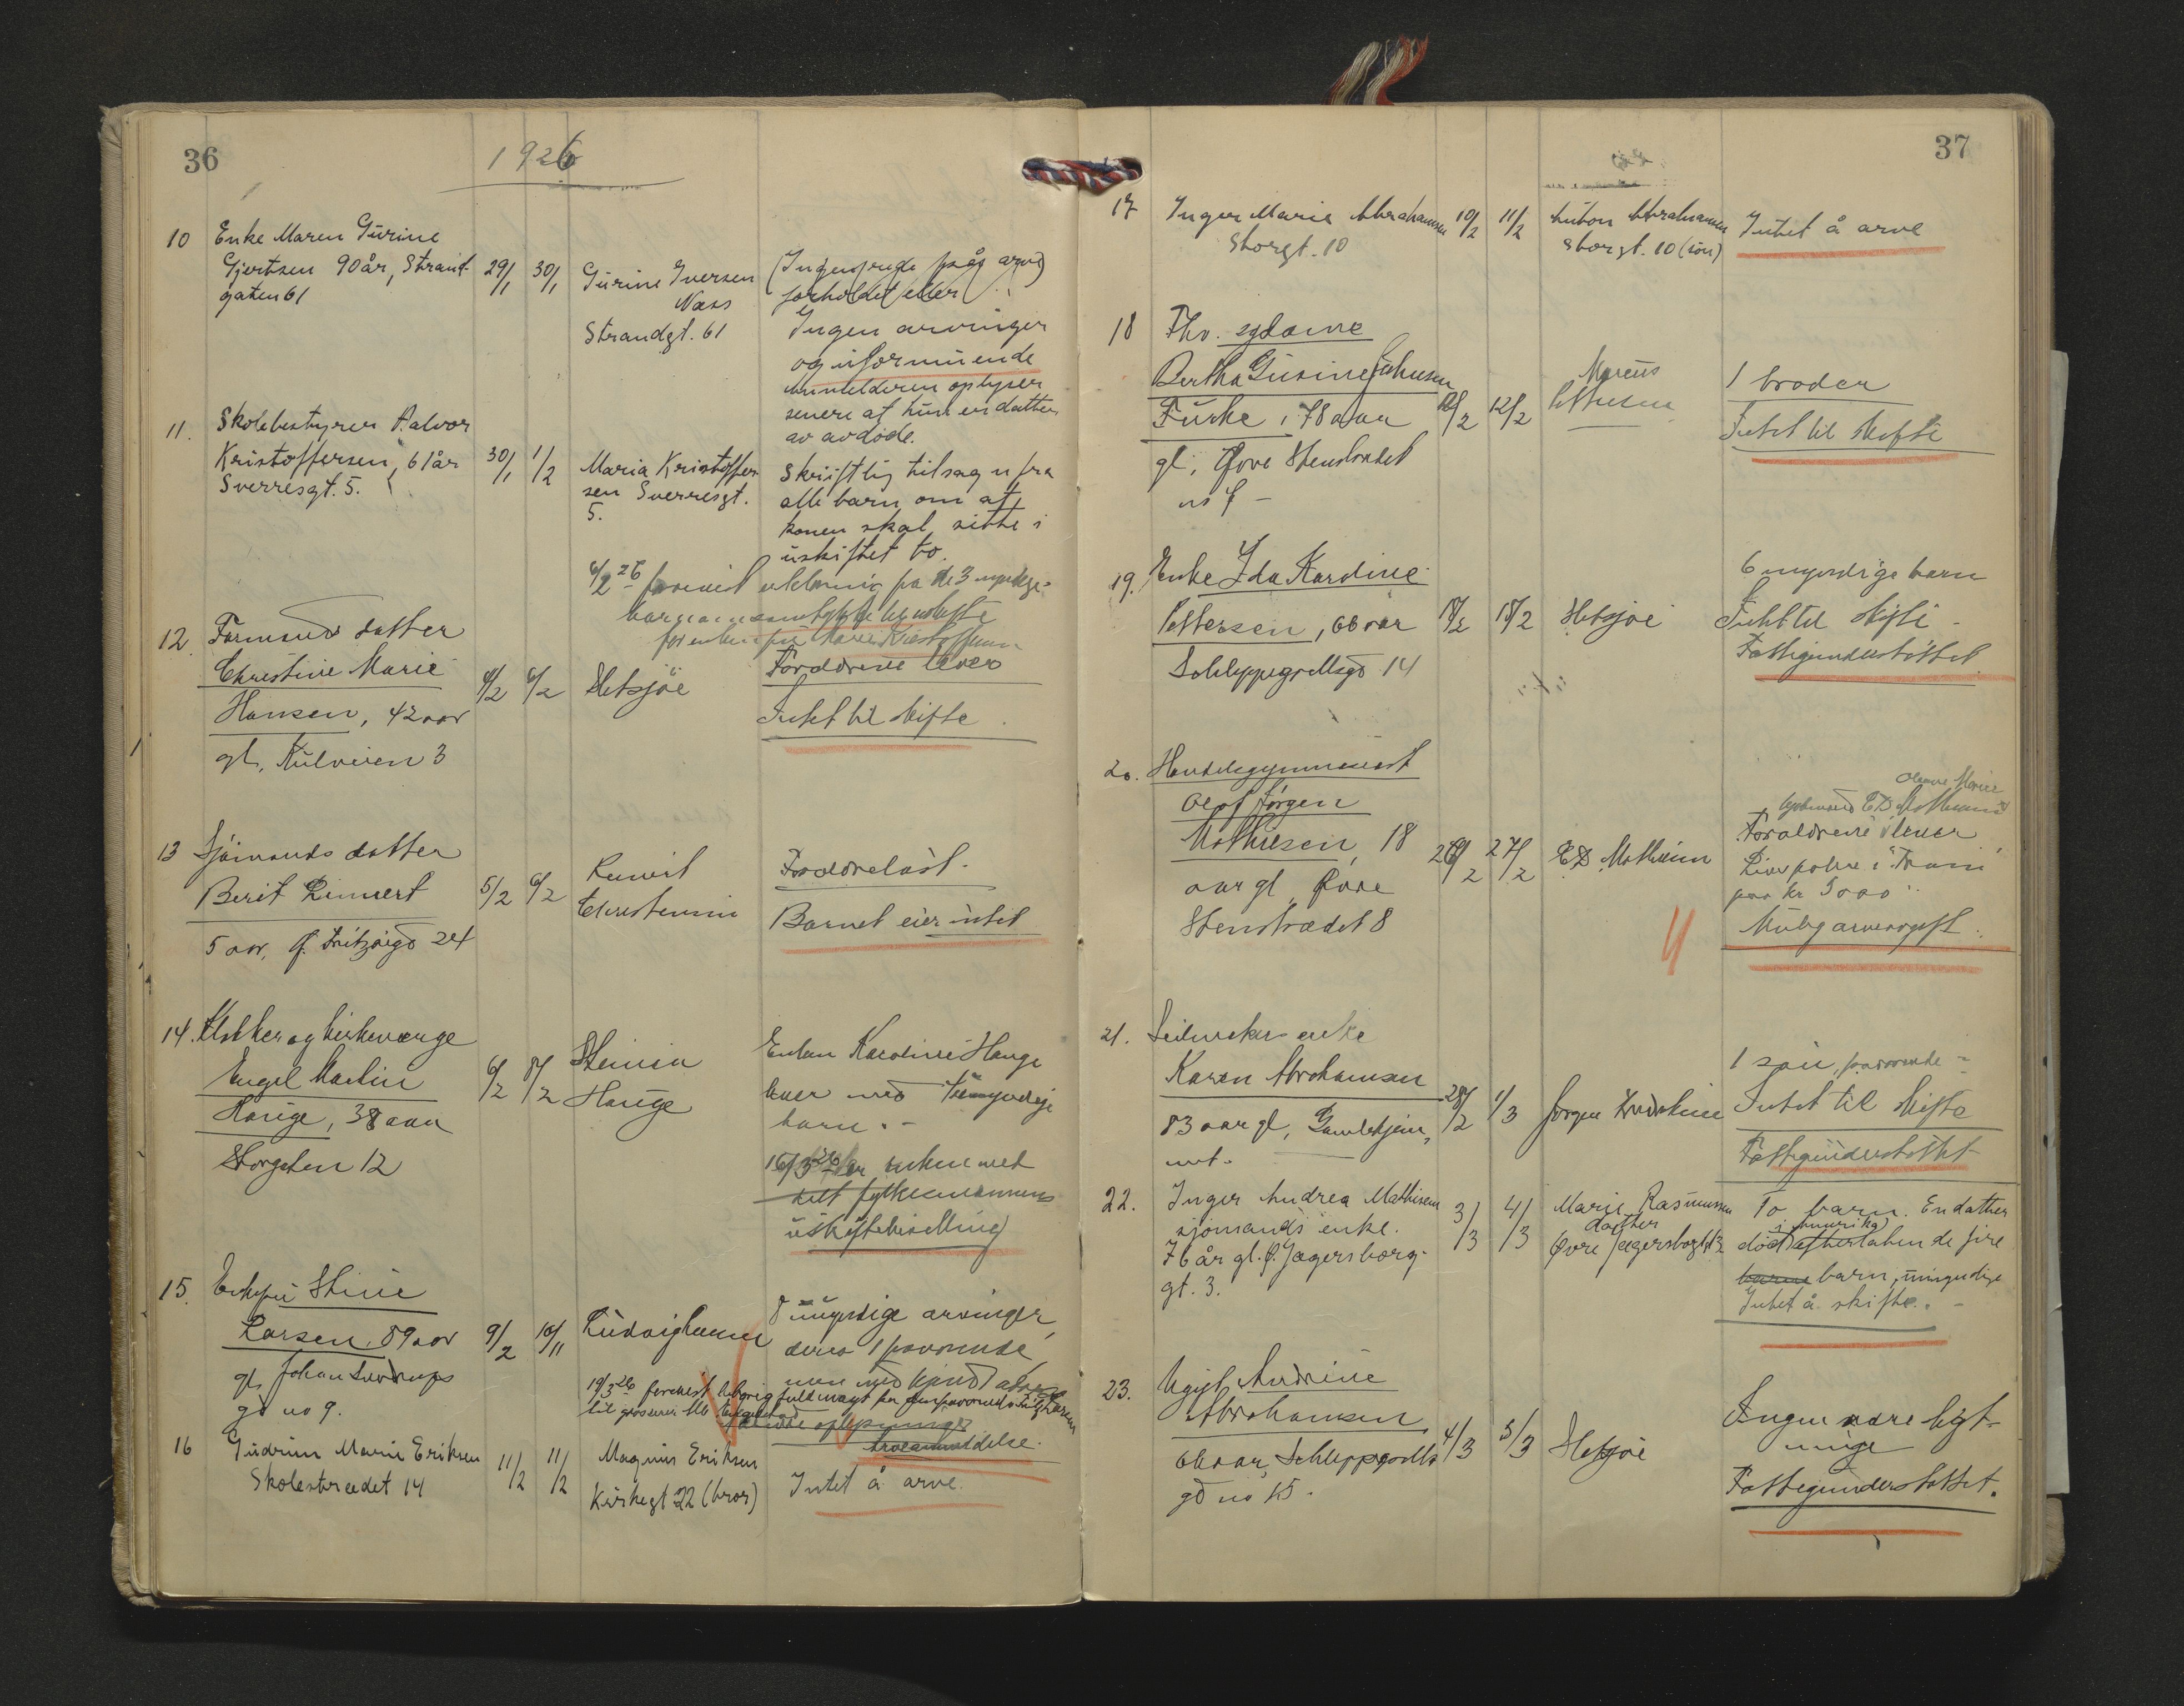 36
1926
10 Enke Maren Gurine
Gjertsen 90 år, Strand-
gaten 61
29/1 30/1
Gurine Iversen
Næss
Strandgt. 61
forholdet eller
Ingen arvinger
og uformuende
Anmelderen oplyser
senere at hun er datter
av avdøde.
11. Skolebestyrer Halvor
Kristoffersen, 61 år
Sverresgt. 5.
30/1 1/2
Maria Kristoffer-
sen Sverresgt.
5.
Skriftlig tilsagn fra
alle barn om at
konen skal sitte i
uskiftet bo.
6/2 26
12. Formands datter
Christine Marie
Hansen, 42 aar
gl., Kulveien 3
4/2 6/2
Hetsjøe
Forældrene lever
Intet til skifte
13 Sjømands datter
Berit Linnert
5 aar, Ø. Fritzøegd 24
5/2 6/2
Forældreløst.
Barnet eier intet
14. Klokker og kirkeværge
Engel Martin
Hauge, 38 aar
Storgaten 12
6/2 8/2
Hauge
Enken Karoline Hauge
lever med umyndige
barn. -
16/3 26 er enken med
delt fylkesmannens
uskiftebevilling
15. Enkefru Stine
Larsen 89 aar
gl. Johan Sverdrups
gd no 9.
9/2 10/11
8 myndige arvinger,
derav 1 fraværende,
men med kjendt adresse
19/3 26 forevist fuldmagt fra
arveanmeldelse.
16 Gudrun Marie Eriksen
Skolestrædet 14
11/2 11/2
Magnus Eriksen
Kirkegt 22 (bror)
Intet å arve.
37
17 Inger Marie Abrahamsen
Storgt. 10
10/2 11/2
Anton Abrahamsen
Storgt. 10 (søn)
Intet å arve
18 Fhv. sydame
Bertha Gusine Johnsen
Furke, 78 aar
gl., Øvre Stenstrædet
no 4 -
12/2
Marcus
1 broder
Intet til skifte
19. Enke Ida Karoline
Pettersen, 66 aar
Schleppegrellsgd 14
18/2
Hetsjøe
6 myndige barn
Intet til skifte -
Fattigunderstøttet
20. Handelsgymnasiast
Olaf Jørgen
Mathiesen, 18
aar gl, Øvre
Stenstrædet 8
26/2 27/2
E.D. Mathiesen
Forældrene lever
Livspolise i
paa kr 5000
Mulig arveavgift.
21. Seilmakerenke
Karen Abrahamsen
83 aar gl, Gamlehjem,
met.
28/2 1/3
Jørgen
1 søn, fraværende -
Intet til skifte
Fattigunderstøttet
22. Inger Andrea Mathisen
sjømands enke.
76 år gl. Ø. Jægersborg-
gt. 3.
3/3 4/3
Marie Rasmussen
datter
Øvre Jægersborggt 3
To barn. En datter
i Amerika
død efterlatende fire
barne barn, umyndige
Intet å skifte. -
23. Ugift Andrine
Abrahamsen
66 aar, Schleppegrells
gd no 15.
4/3 5/3
Hetsjøe
Ingen nære slegt-
ninge
Fattigunderstøttet.